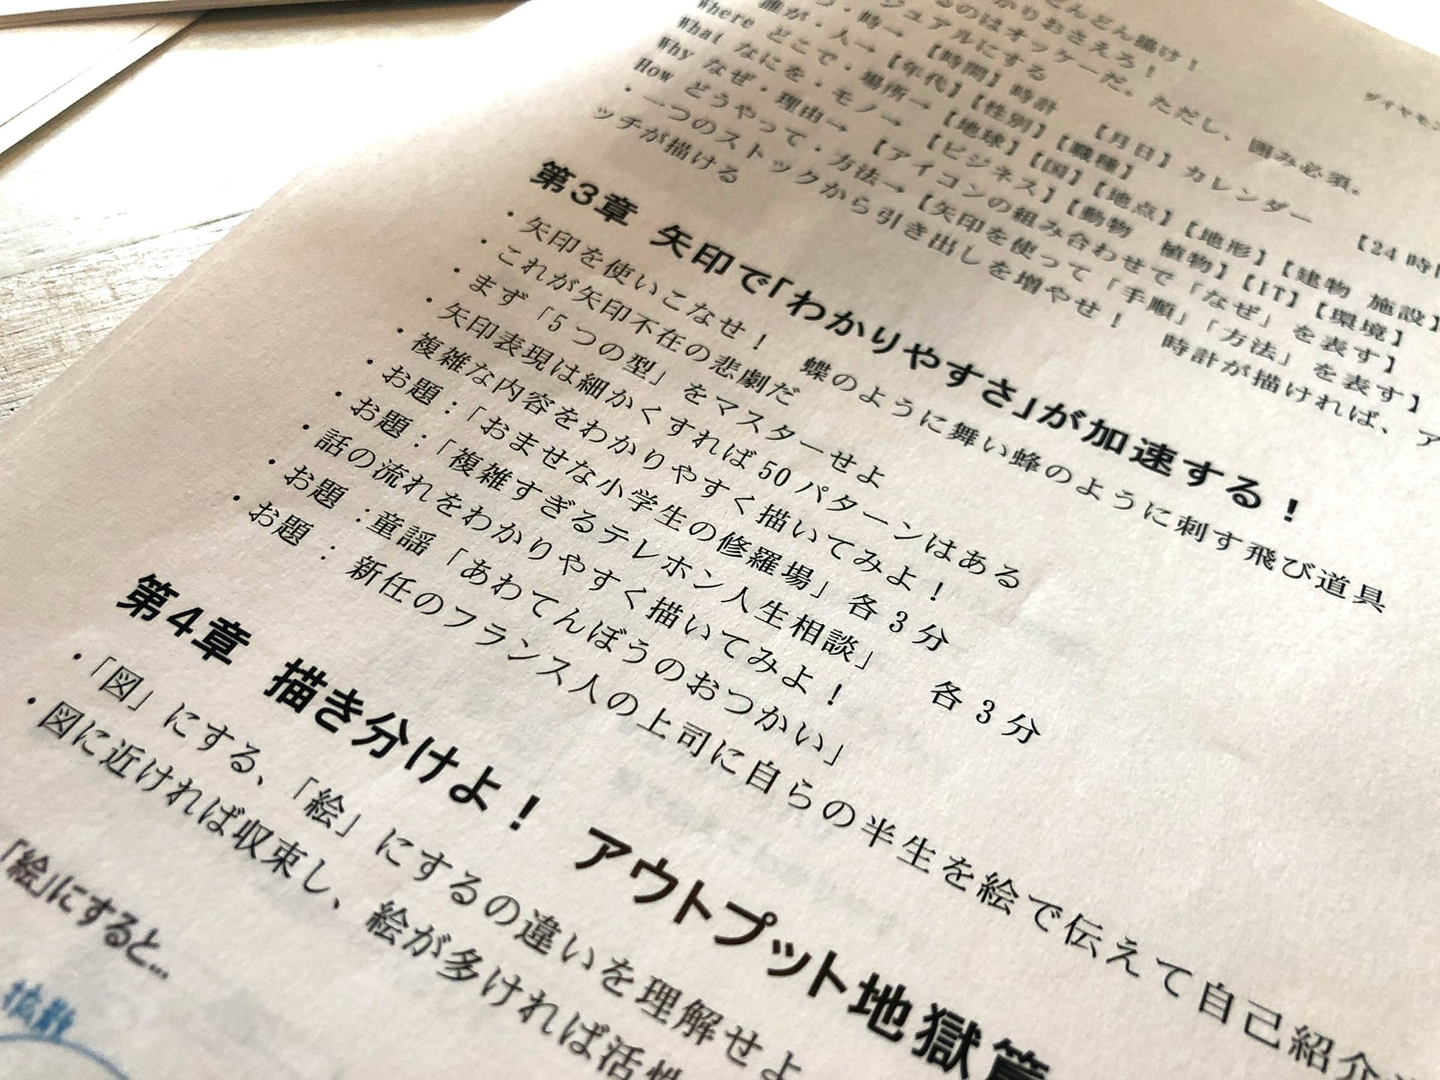 どんどん描け！
ダイヤモン
るのはオッケーだ。ただし、囲み必須。
ジュアルにする
・時→ 【時間】時計 【月日】カレンダー 【24時
誰が・人→【年代】【性別】【職種】
Where どこで・場所→ 【地球】【国】【地点】【地形】【建物 施設】
What なにを・モノ→ 【ビジネス】【動物 植物】【IT】【環境】
Why なぜ・理由→ 【アイコンの組み合わせで「なぜ」を表す】
How どうやって・方法→【矢印を使って「手順」「方法」を表す】
・一つのストックから引き出しを増やせ！ 時計が描ければ、ア
ッチが描ける
第3章 矢印で「わかりやすさ」が加速する！
・矢印を使いこなせ！ 蝶のように舞い蜂のように刺す飛び道具
・これが矢印不在の悲劇だ
・まず「5つの型」をマスターせよ
・矢印表現は細かくすれば50パターンはある
・複雑な内容をわかりやすく描いてみよ！
・お題：「おませな小学生の修羅場」各3分
・お題：「複雑すぎるテレホン人生相談」 各3分
・話の流れをわかりやすく描いてみよ！
・お題：童謡「あわてんぼうのおつかい」
・お題： 新任のフランス人の上司に自らの半生を絵で伝えて自己紹介
第4章 描き分けよ！ アウトプット地獄篇
・「図」にする、「絵」にするの違いを理解せよ
・図に近ければ収束し、絵が多ければ活性
「絵」にすると…
拡散